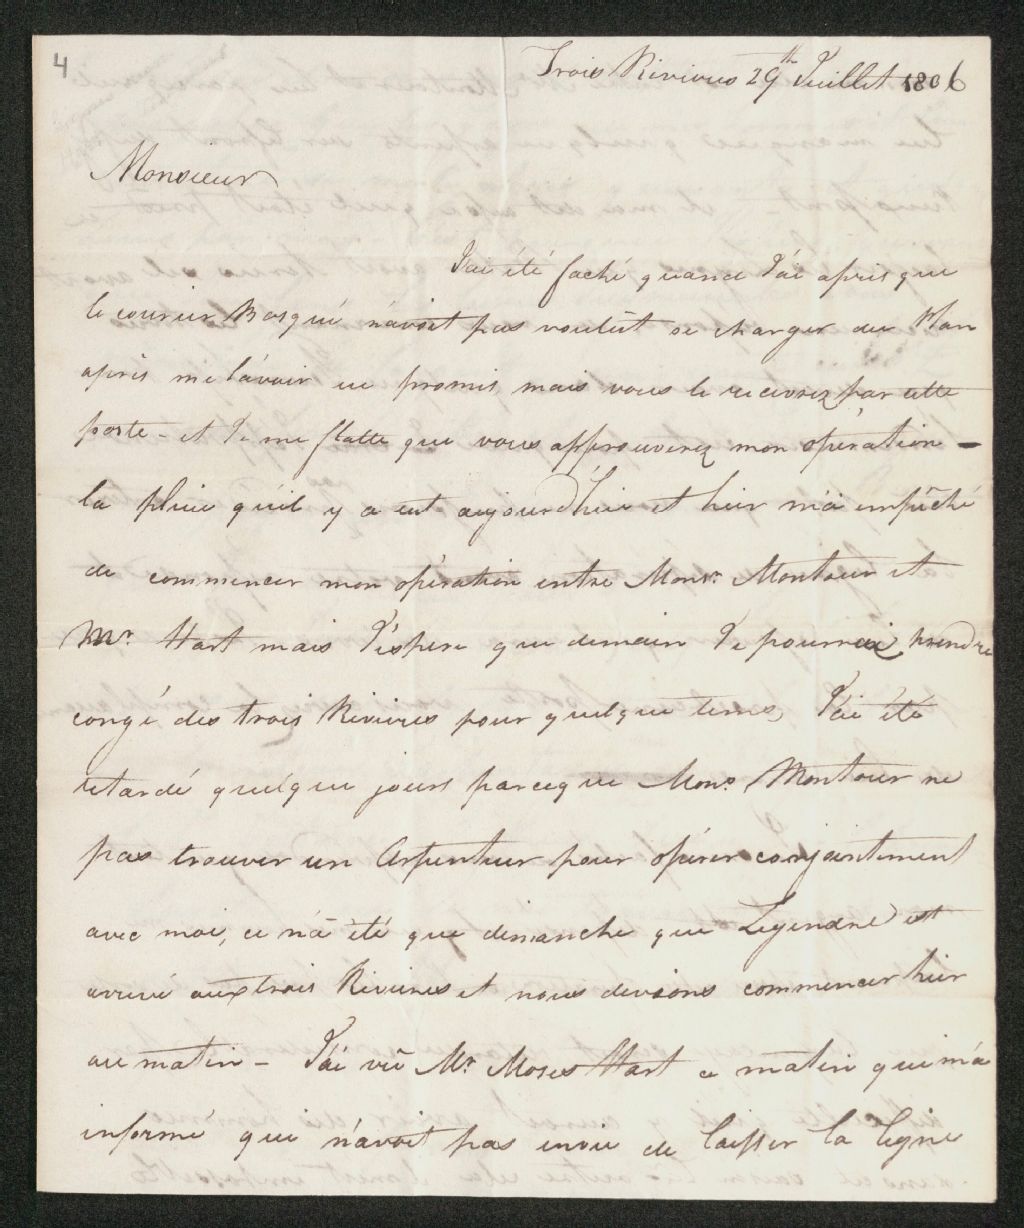 4
Trois Rivieres 29th Juillet 1806
Monsieur
J'ai été faché quand J'ai apris que
le courier Bosqué n'avoit pas voulût se charger du Plan
apris me l'avoir eu promis mais vous le recevrez par cette
poste - et Je me flatte que vous approuverez mon opération -
la pluie qu'il y a eut aujourd'hui et hier m'a empêché
de commencer mon opération entre Monsr. Montour et
Mr Hart mais J'éspere que demain Je pourrai prendre
congé des trois Rivieres pour quelque tems, J'ai été
retardé quelque jours parceque Monsr. Montour ne
pas trouver un Arpenteur pour opérer conjointement
avec moi, ce n'a été que dimanche que Legendre est
arrivé aux trois Rivieres et nous devions commencer hier
au matin - J'ai vû Mr. Moses Hart ce matin qui m'a
informé que n'avoit pas envie de laisser la ligne